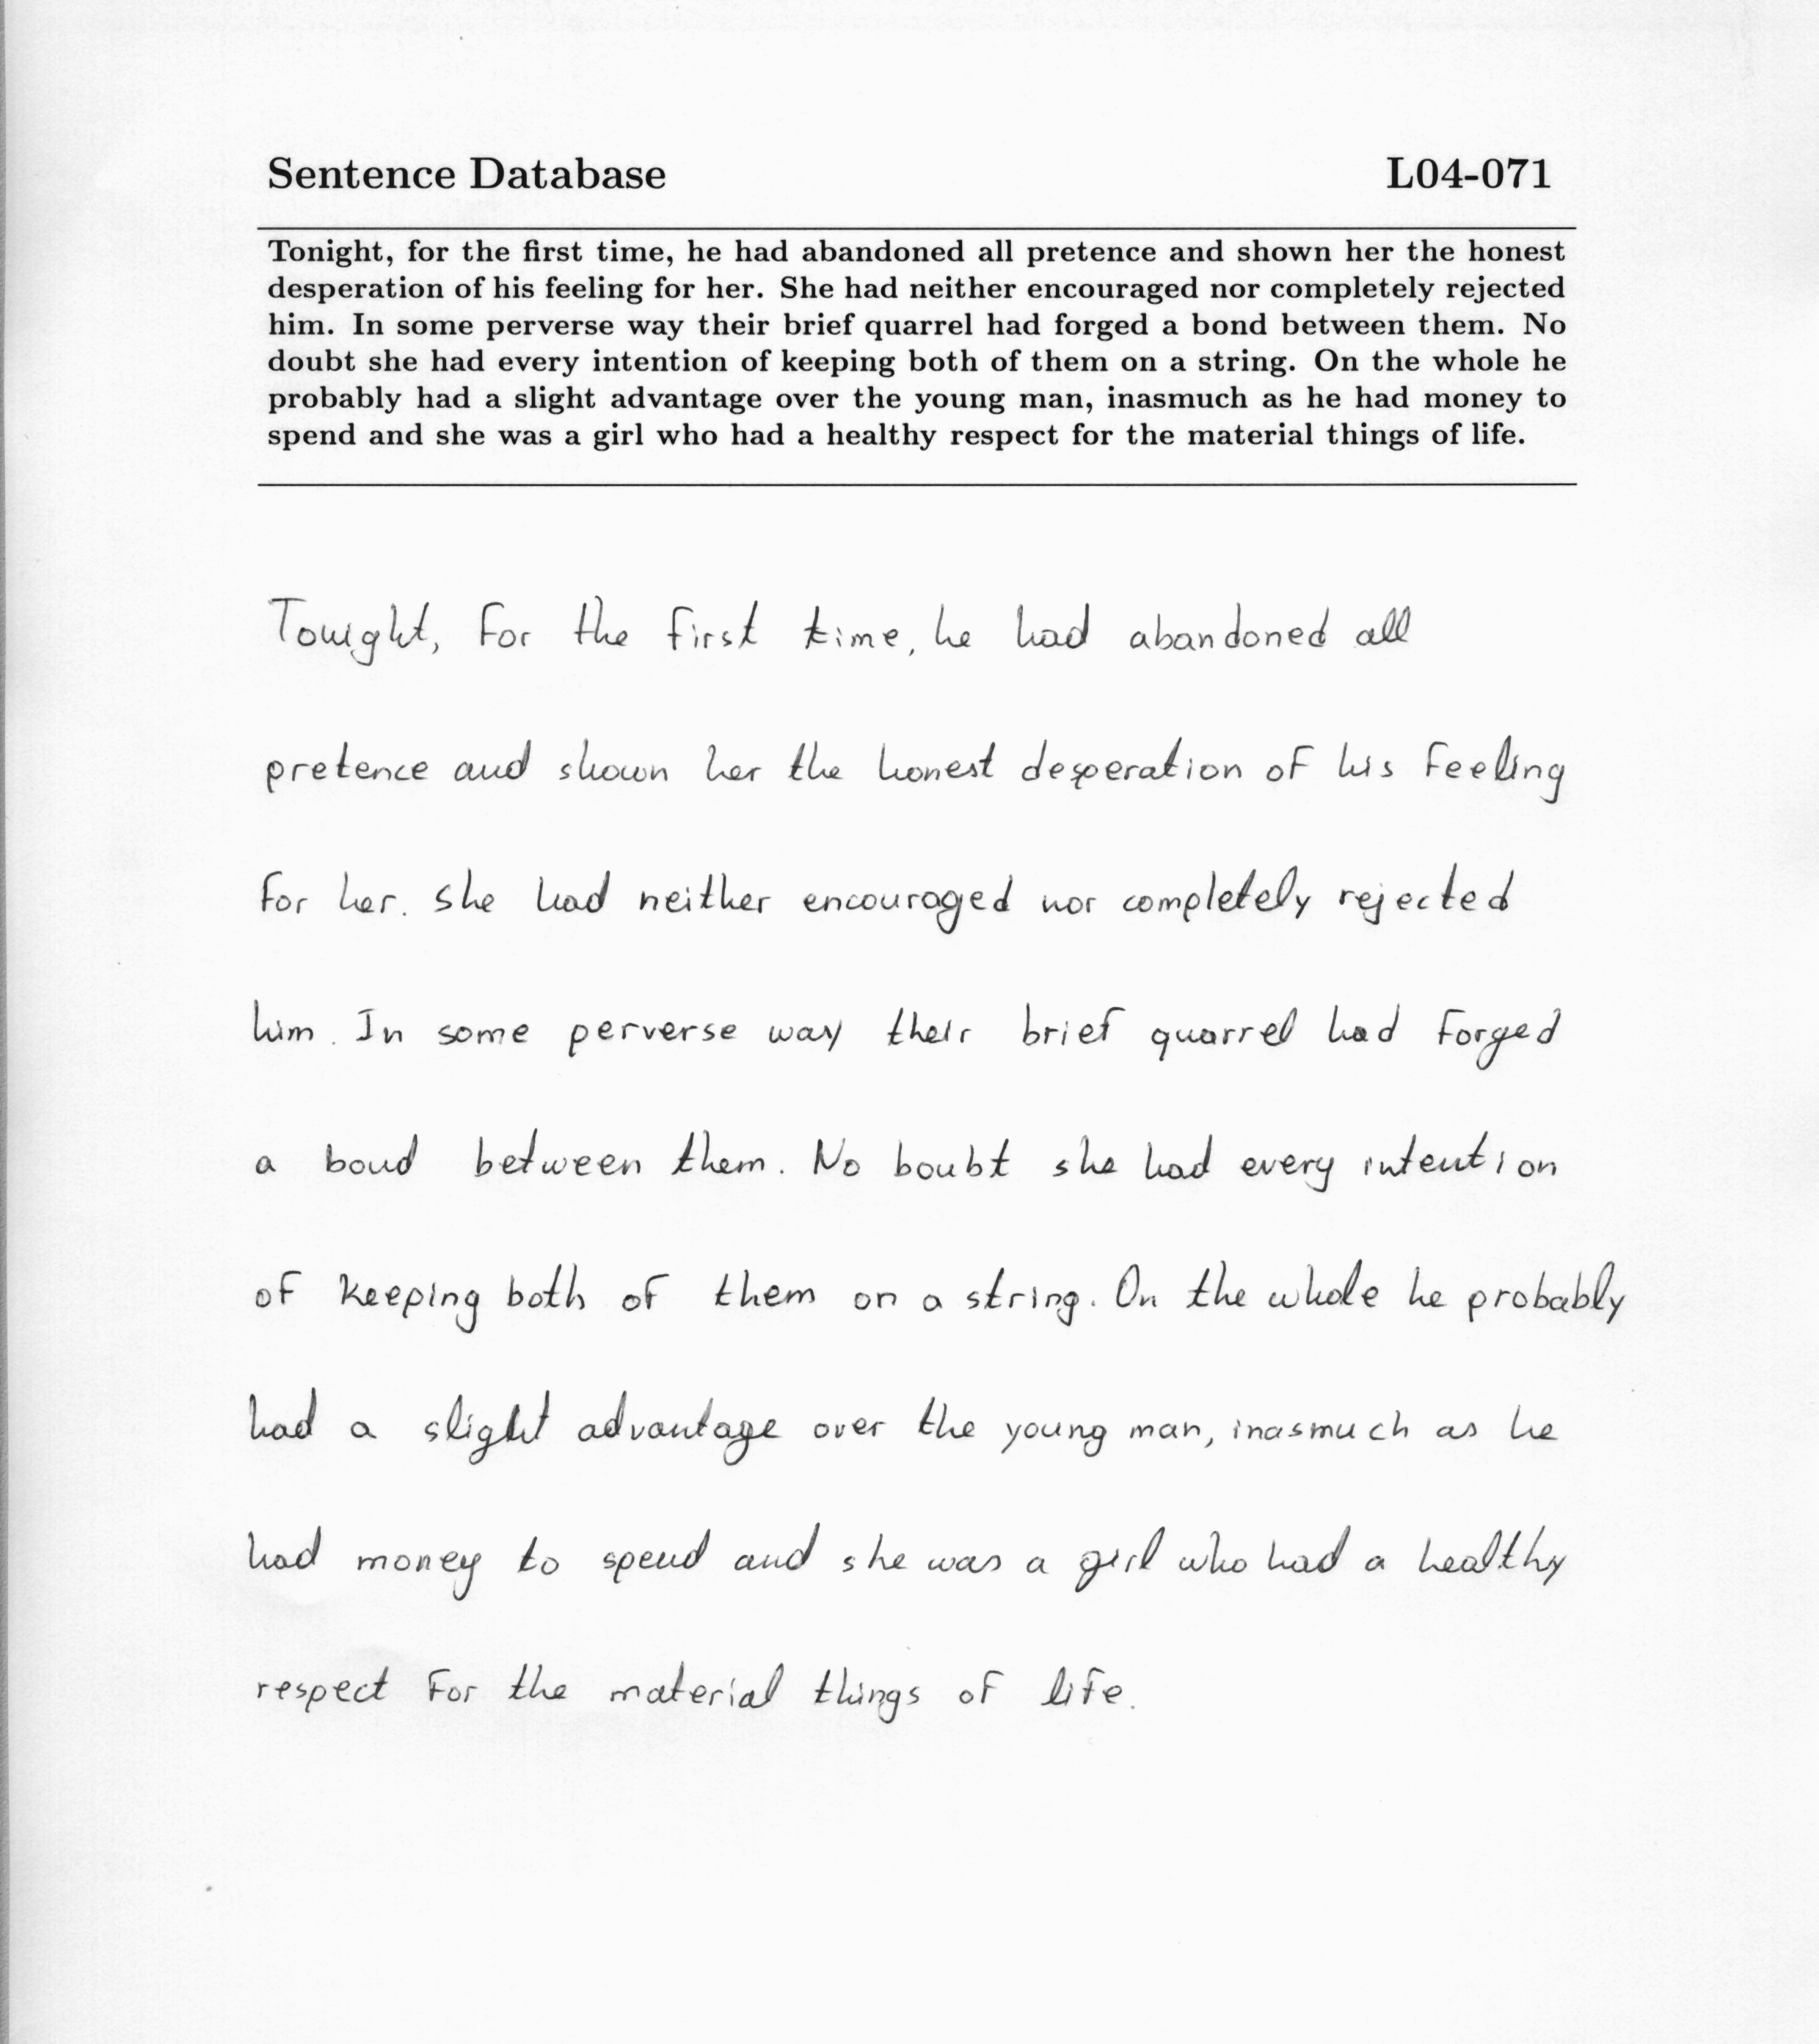 Sentence Database L04-071
Tonight, for the first time, he had abandoned all pretence and shown her the honest
desperation of his feeling for her. She had neither encouraged nor completely rejected
him. In some perverse way their brief quarrel had forged a bond between them. No
doubt she had every intention of keeping both of them on a string. On the whole he
probably had a slight advantage over the young man, inasmuch as he had money to
spend and she was a girl who had a healthy respect for the material things of life.
Tonight, for the first time, he had abandoned all
pretence and shown her the honest desperation of his feeling
for her. She had neither encouraged nor completely rejected
him. In some perverse way their brief quarrel had forged
a bond between them. No boubt she had every intention
of keeping both of them on a string. On the whole he probably
had a slight advantage over the young man, inasmuch as he
had money to spend and she was a girl who had a healthy
respect for the material things of life.